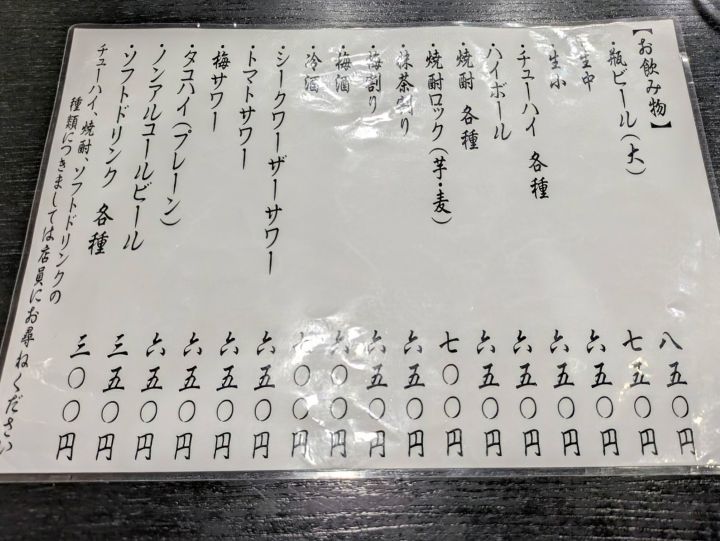 【お飲み物】
瓶ビール(大) 八五〇円
・生中 七五〇円
・生小 六五〇円
・チューハイ 各種 六五〇円
・ハイボール 六五〇円
・焼酎 各種 六五〇円
・焼酎ロック(芋・麦) 七〇〇円
・抹茶割り 六五〇円
・梅割り 六五〇円
・梅酒 六〇〇円
・冷酒
・シークワーザーサワー 六五〇円
・トマトサワー 六五〇円
・梅サワー 六五〇円
・タコハイ(プレーン) 六五〇円
・ノンアルコールビール 三五〇円
・ソフトドリンク 各種 三〇〇円
チューハイ、焼酎、ソフトドリンクの
種類につきましては店員にお尋ねください